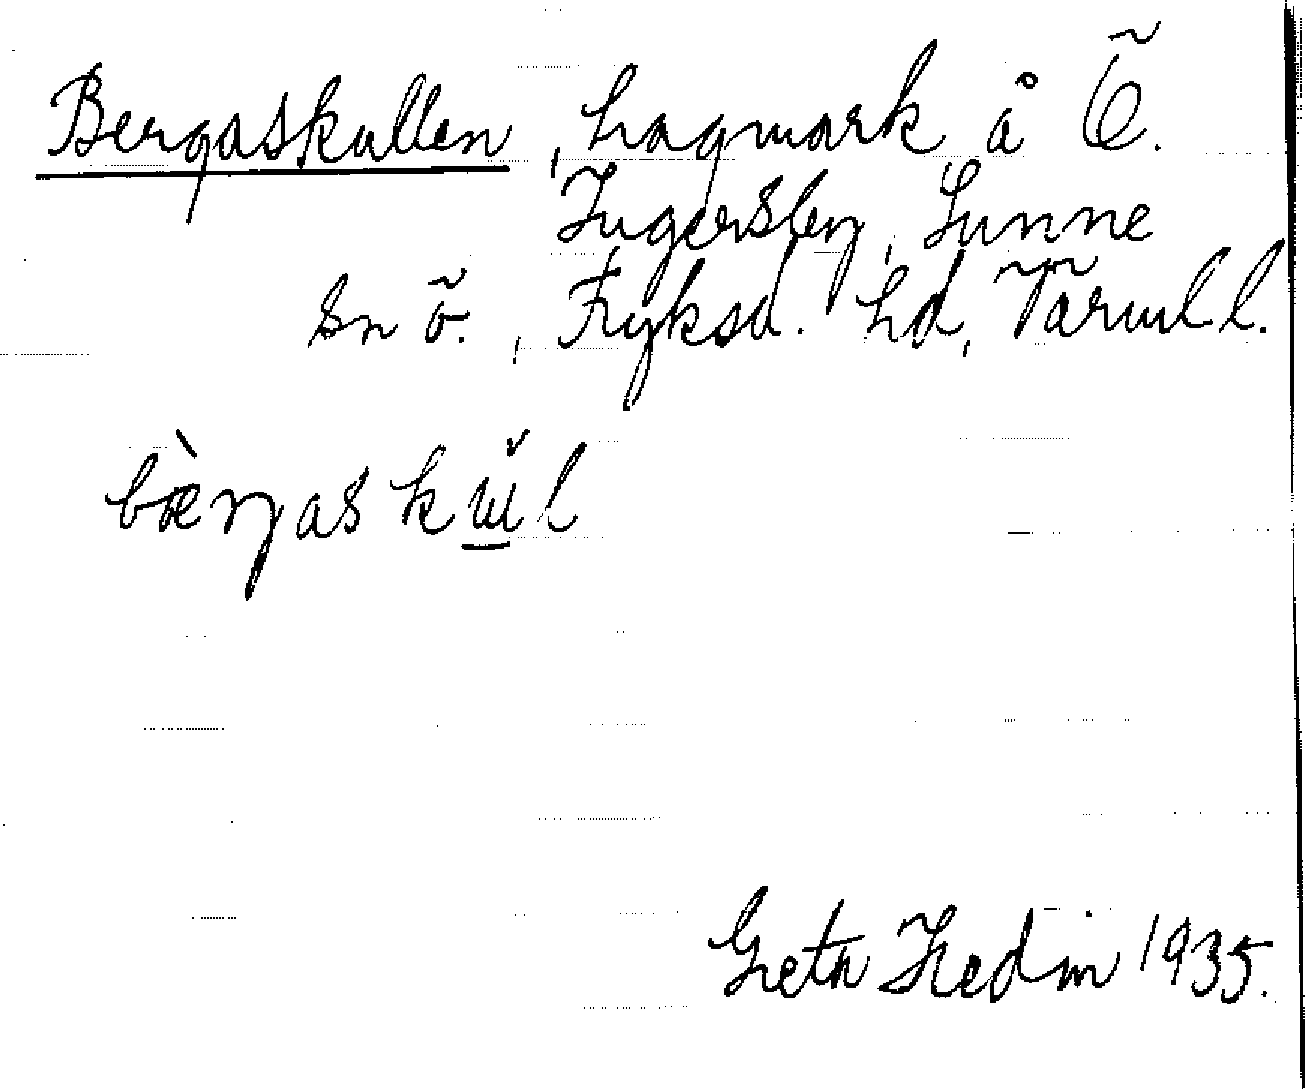 Bergaskallen, hagmark å Ö.
Ingersby, Sunne
sn ö., Fryksd. hd, Värml l.
bæ̀rjaskɯ̆l
Greta Hedin 1935.